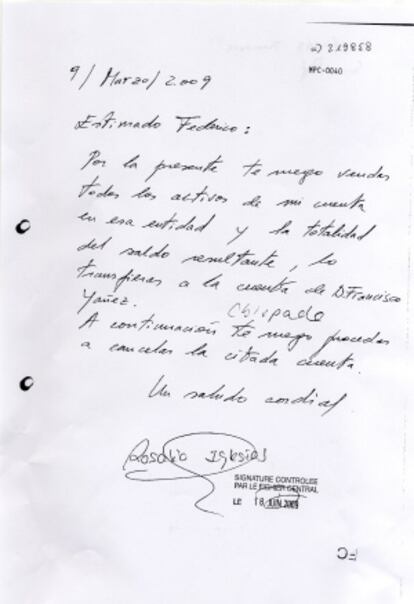 a) 219858
MPC-0040
9/Marzo/2009
Estimado Federico:
Por la presente te ruego vendas
todos los activos de mi cuenta
en esa entidad y la totalidad
del saldo resultante, lo
transfieras a la cuenta de D. Francisco
Yáñez. Chispado
A continuación te ruego procedas
a cancelar la citada cuenta.
Un saludo cordial
Rosalio Iglesias
SIGNATURE CONTROLEE
PAR LE FICHIER CENTRAL
LE 18 JUIN 2009
FC